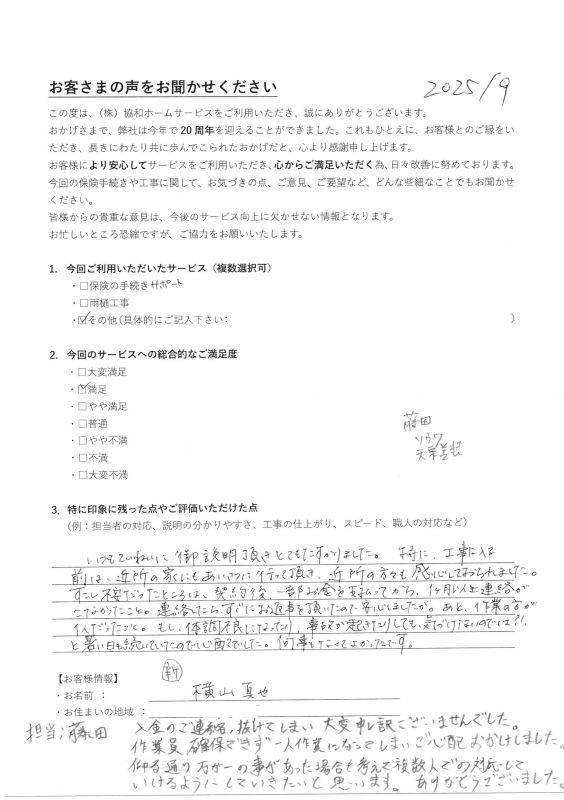 2025/9
お客さまの声をお聞かせください
この度は、（株）協和ホームサービスをご利用いただき、誠にありがとうございます。
おかげさまで、弊社は今年で20周年を迎えることができました。これもひとえに、お客様とのご縁をい
ただき、長きにわたり共に歩んでこられたおかげだと、心より感謝申し上げます。
お客様により安心してサービスをご利用いただき、心からご満足いただく為、日々改善に努めております。
今回の保険手続きや工事に関して、お気づきの点、ご意見、ご要望など、どんな些細なことでもお聞かせ
ください。
皆様からの貴重な意見は、今後のサービス向上に欠かせない情報となります。
お忙しいところ恐縮ですが、ご協力をお願いいたします。
1. 今回ご利用いただいたサービス（複数選択可）
・□保険の手続きサポート
・□雨樋工事
・☑その他(具体的にご記入下さい: )
2. 今回のサービスへの総合的なご満足度
・□大変満足
・☑満足
・□やや満足
・□普通
・□やや不満
・□不満
・□大変不満
藤田
ソウワ
3. 特に印象に残った点やご評価いただけた点
（例：担当者の対応、説明の分かりやすさ、工事の仕上がり、スピード、職人の対応など）
いつもていねいに御説明頂きとてもたすかりました。特に、工事に入る
前は、近所の家にもあいさつに行って頂き、近所の方も感心しておられました。
すこし不安だったところは、契約後、一部お金を支払ってから、1ヶ月以上連絡が
こなかったこと。連絡したらすぐにお返事を頂いたので安心しましたが。あと、作業の方が
1人だったこと。もし、体調不良になったり、事故が起きたりしても、気づけないのでは?!
と暑い日も続いていたので心配でした。何事もなくてよかったです。
【お客様情報】
・お名前 ： 横山 真也
・お住まいの地域 ：
担当:藤田
入金のご連絡,抜けてしまい大変申し訳ございませんでした。
作業員確保できず一人作業になってしまいご心配おかけしました。
仰る通り万が一の事があった場合も考えて複数人での対応して
いけるようにしていきたいと思います。ありがとうございました。